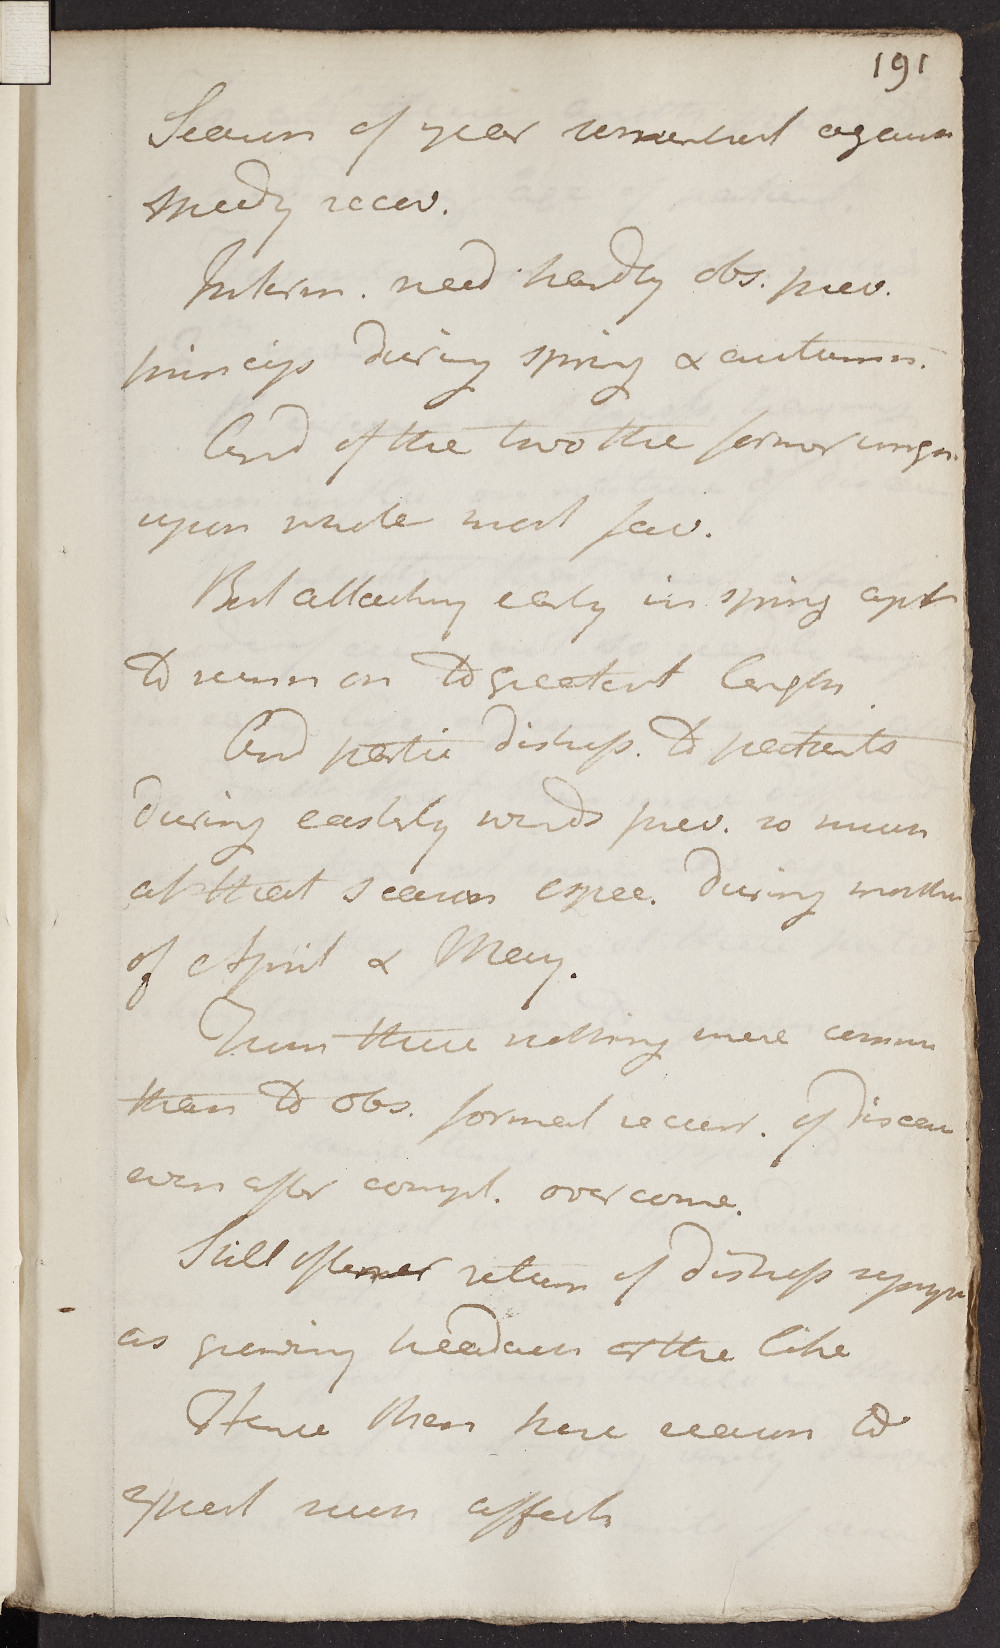 191
Season of year somewhat against
speedy recov.
Interm. need hardly obs. prev.
princip during spring & autumn.
And of the two the former
upon whole most fav.
But attacking early in spring apt
to run on to greatest length
And partic distress. to patients
during easterly winds prev. so much
at that season espec. during months
of April & May.
Thus there nothing more common
than to obs. formal recurr. of disease
even after compl. overcome.
Still oftener return of distress sympt
as periodic headach or the like
Hence then have reason to
expect such effects